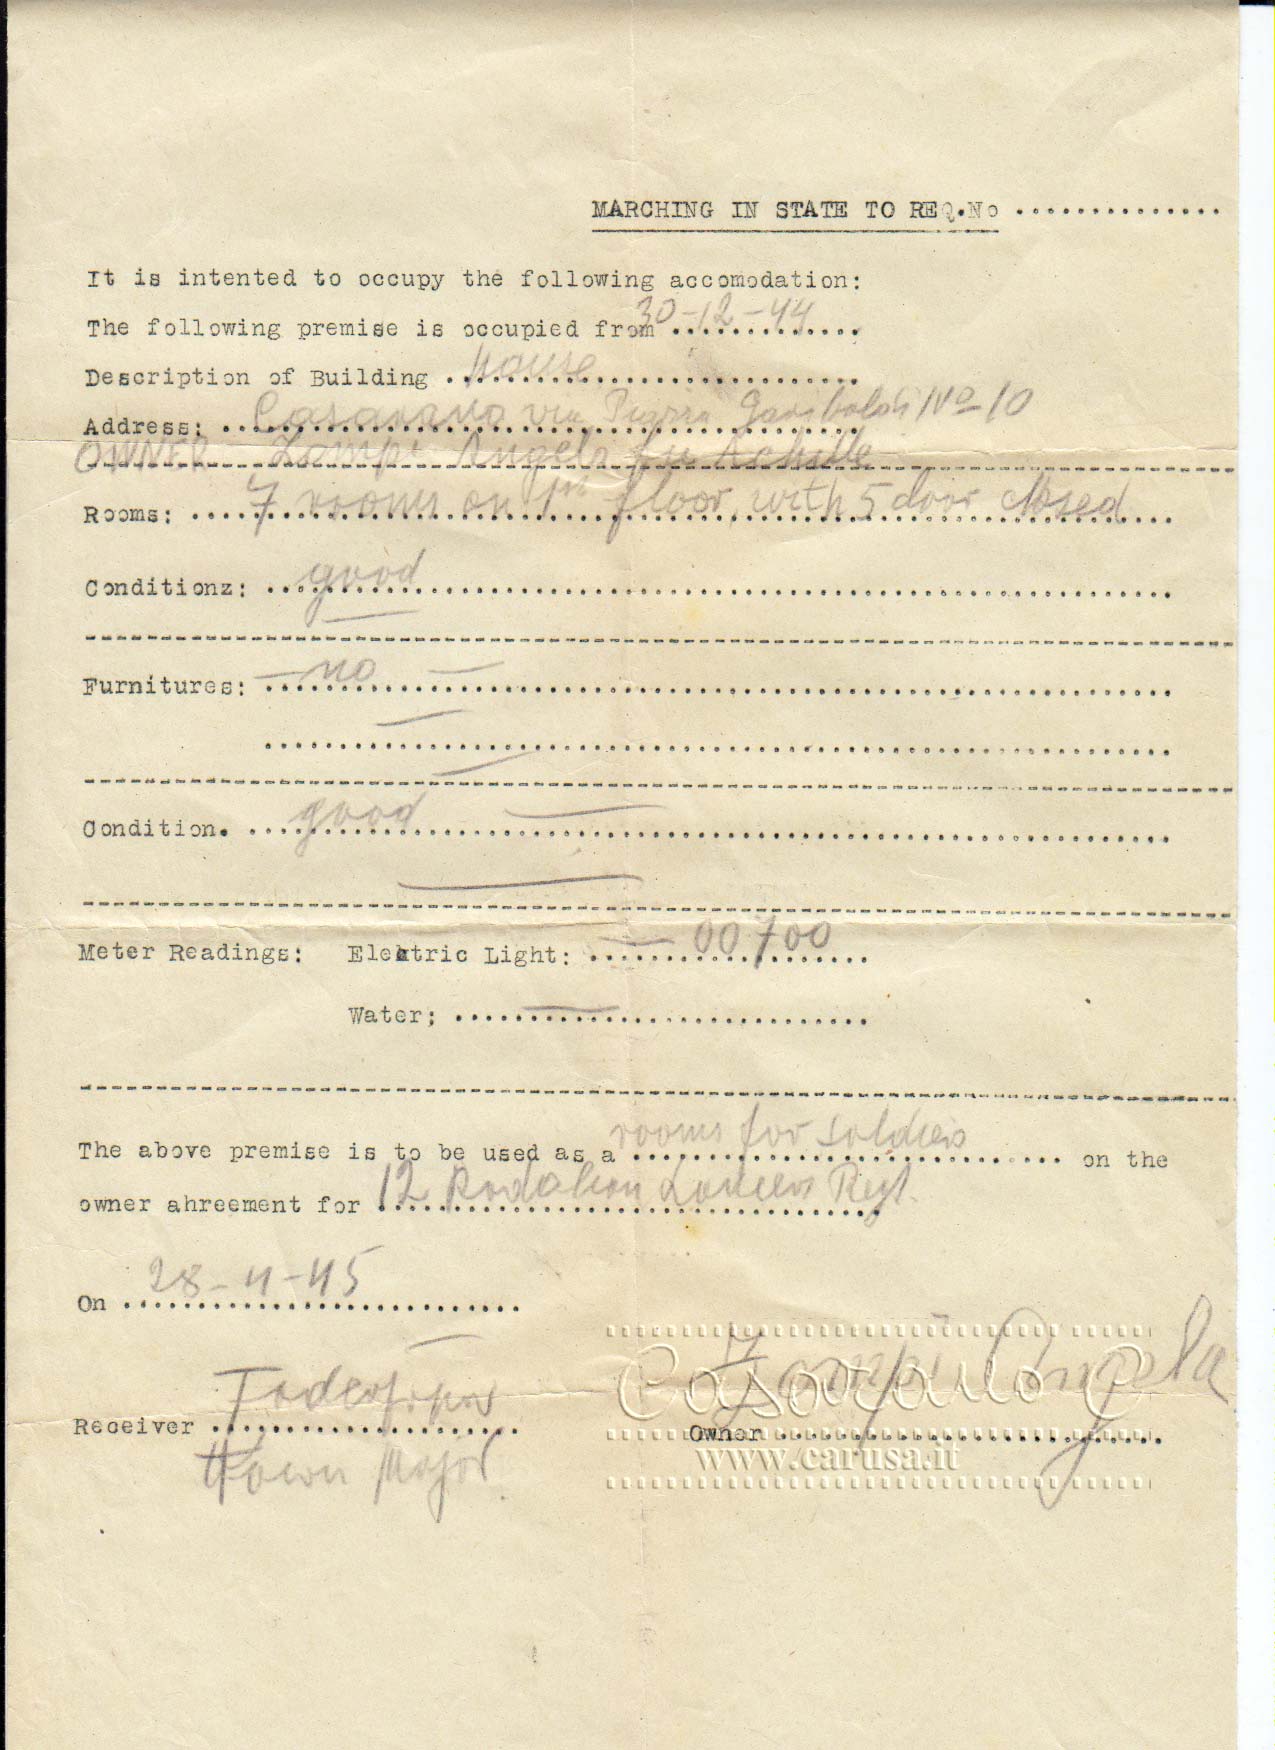 MARCHING IN STATE TO REQ.No ..............
It is intented to occupy the following accomodation:
The following premise is occupied from 30-12-44
Description of Building House
Address: Casarano via Piazza Garibaldi No 10
OWNER Zompi Angela fu Achille
Rooms: 7 rooms on 1st floor, with 5 door closed
Conditionz: good
Furnitures: — no —
Condition. good —
Meter Readings: Elektric Light: — 00700
Water; —
The above premise is to be used as a rooms for soldiers on the
owner ahreement for 12 Podolian Lancers Regt.
On 28-4-45
Receiver
Town Major
Owner Zompi Angela
Casarano
www.carusa.it